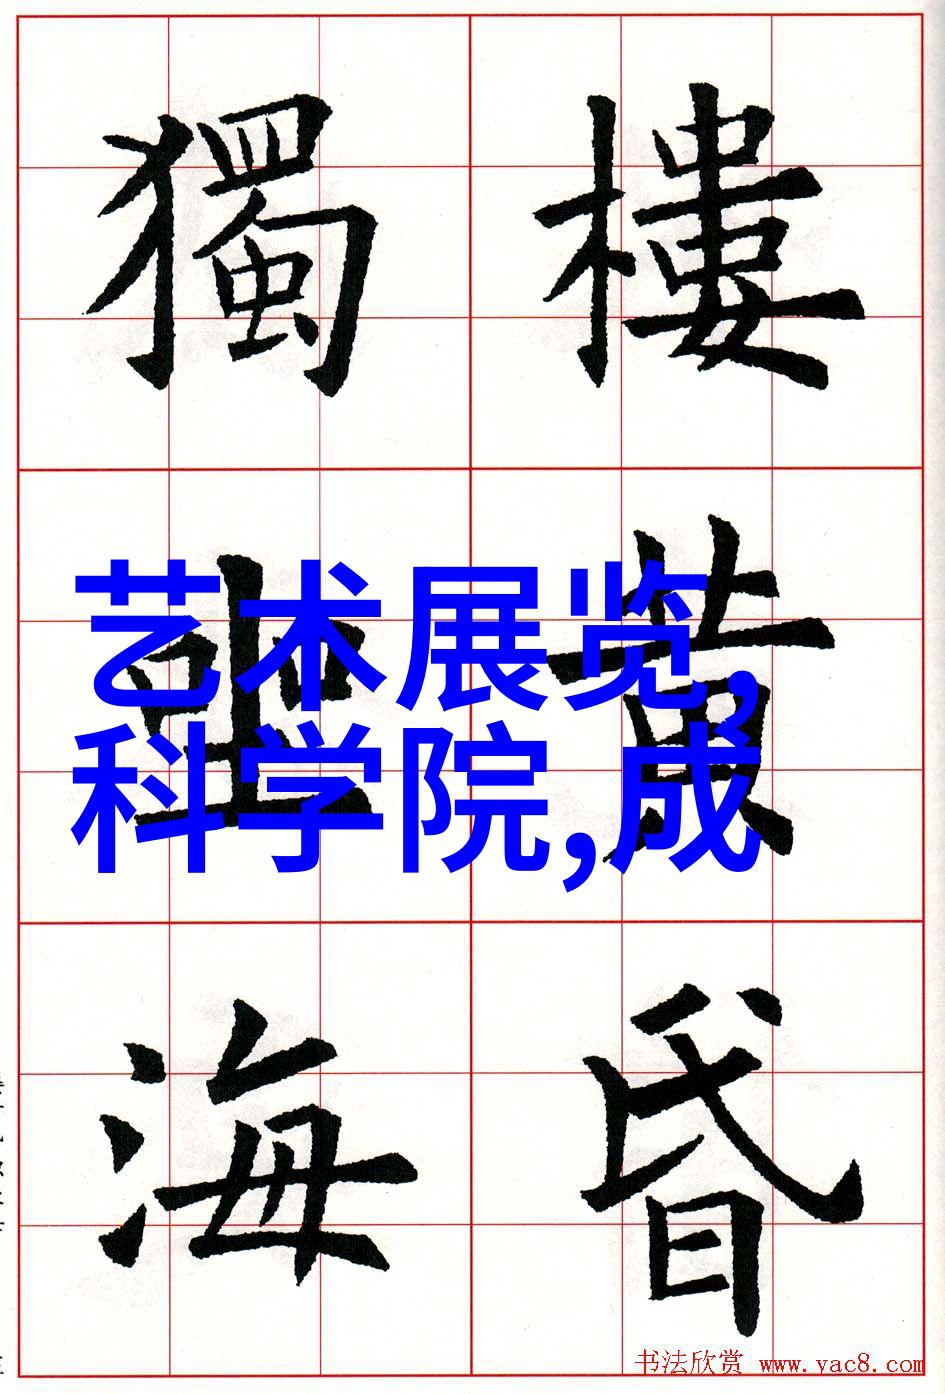 樓黄昏
獨坐海
艺术展览,
科学院,成
书法欣赏 www.yac8.com